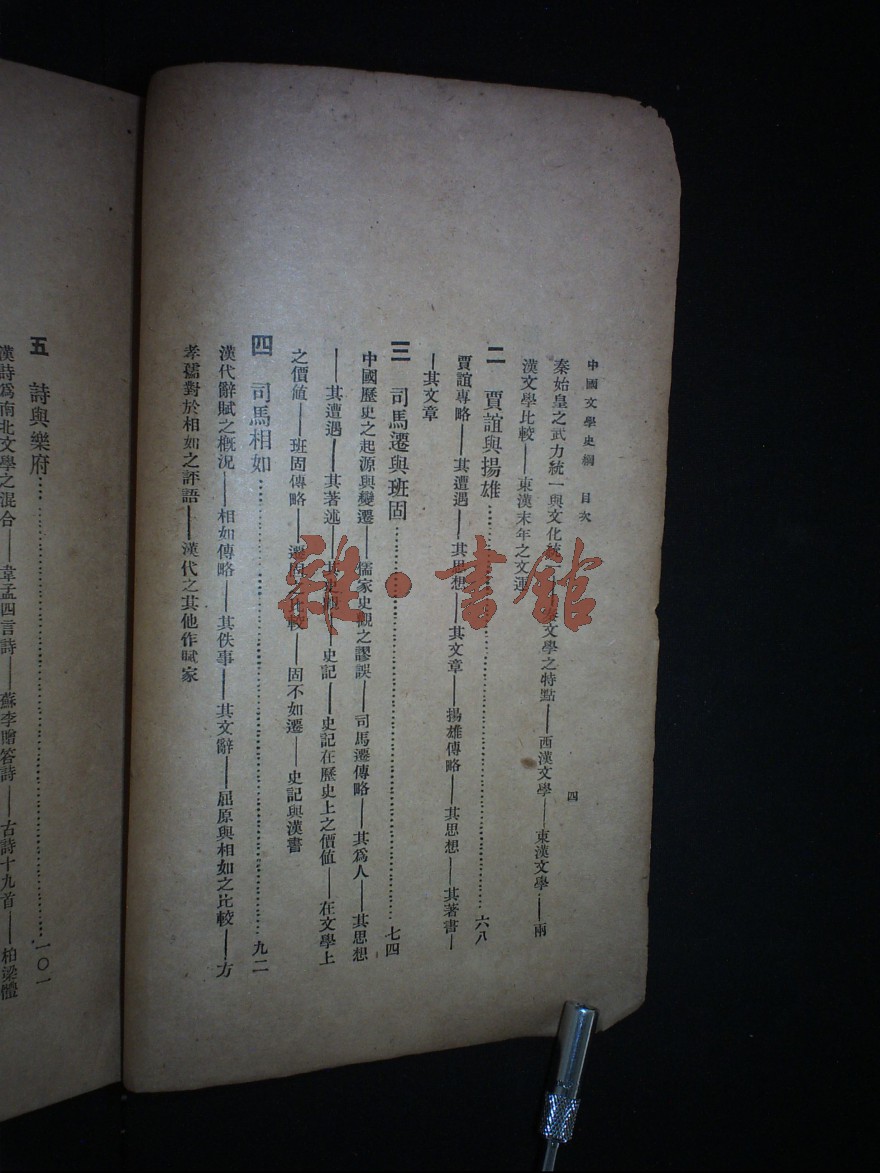 中國文學史綱 目次 四
秦始皇之武力統一與文化統一 文學之特點——西漢文學——東漢文學——兩
漢文學比較——東漢末年之文運
二 賈誼與揚雄 六八
賈誼專略——其遭遇——其思想——其文章——揚雄傳略——其思想——其著書—
—其文章
三 司馬遷與班固 七四
中國歷史之起源與變遷——儒家史觀之謬誤——司馬遷傳略——其爲人——其思想
——其遭遇——其著述——其史 ——史記——史記在歷史上之價値——在文學上
之價値——班固傳略——遷固之比較——固不如遷——史記與漢書
四 司馬相如 九二
漢代辭賦之概況——相如傳略——其佚事——其文辭——屈原與相如之比較——方
孝孺對於相如之評語——漢代之其他作賦家
五 詩與樂府 一〇一
漢詩爲南北文學之混合——韋孟四言詩——蘇李贈答詩——古詩十九首——柏梁體
雜·書館